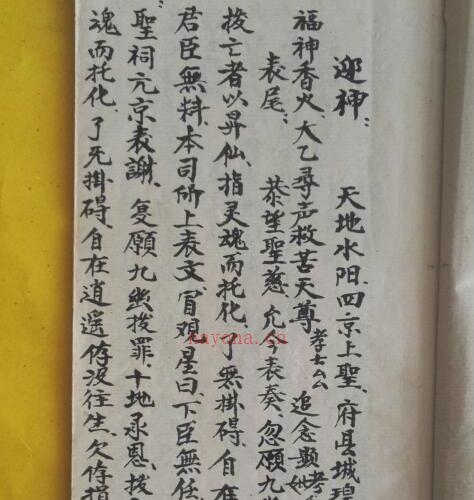 迎神：
天地水阳、四京上聖、府县城
福神香火、大乙尋声救苦天尊 孝士厶厶 追念顯
表尾： 恭望聖慈、允今表奏、忽願九
拔亡者以昇仙、指灵魂而托化、了無掛碍、自在
君臣無料、本司所上表文、冒覌星曰、下臣無任
聖祠亓京表謝、复願九幽拔罪、十地承恩、拔
魂而托化、了死掛碍、自在逍遥、侟没往生、欠侟
nayona.cn